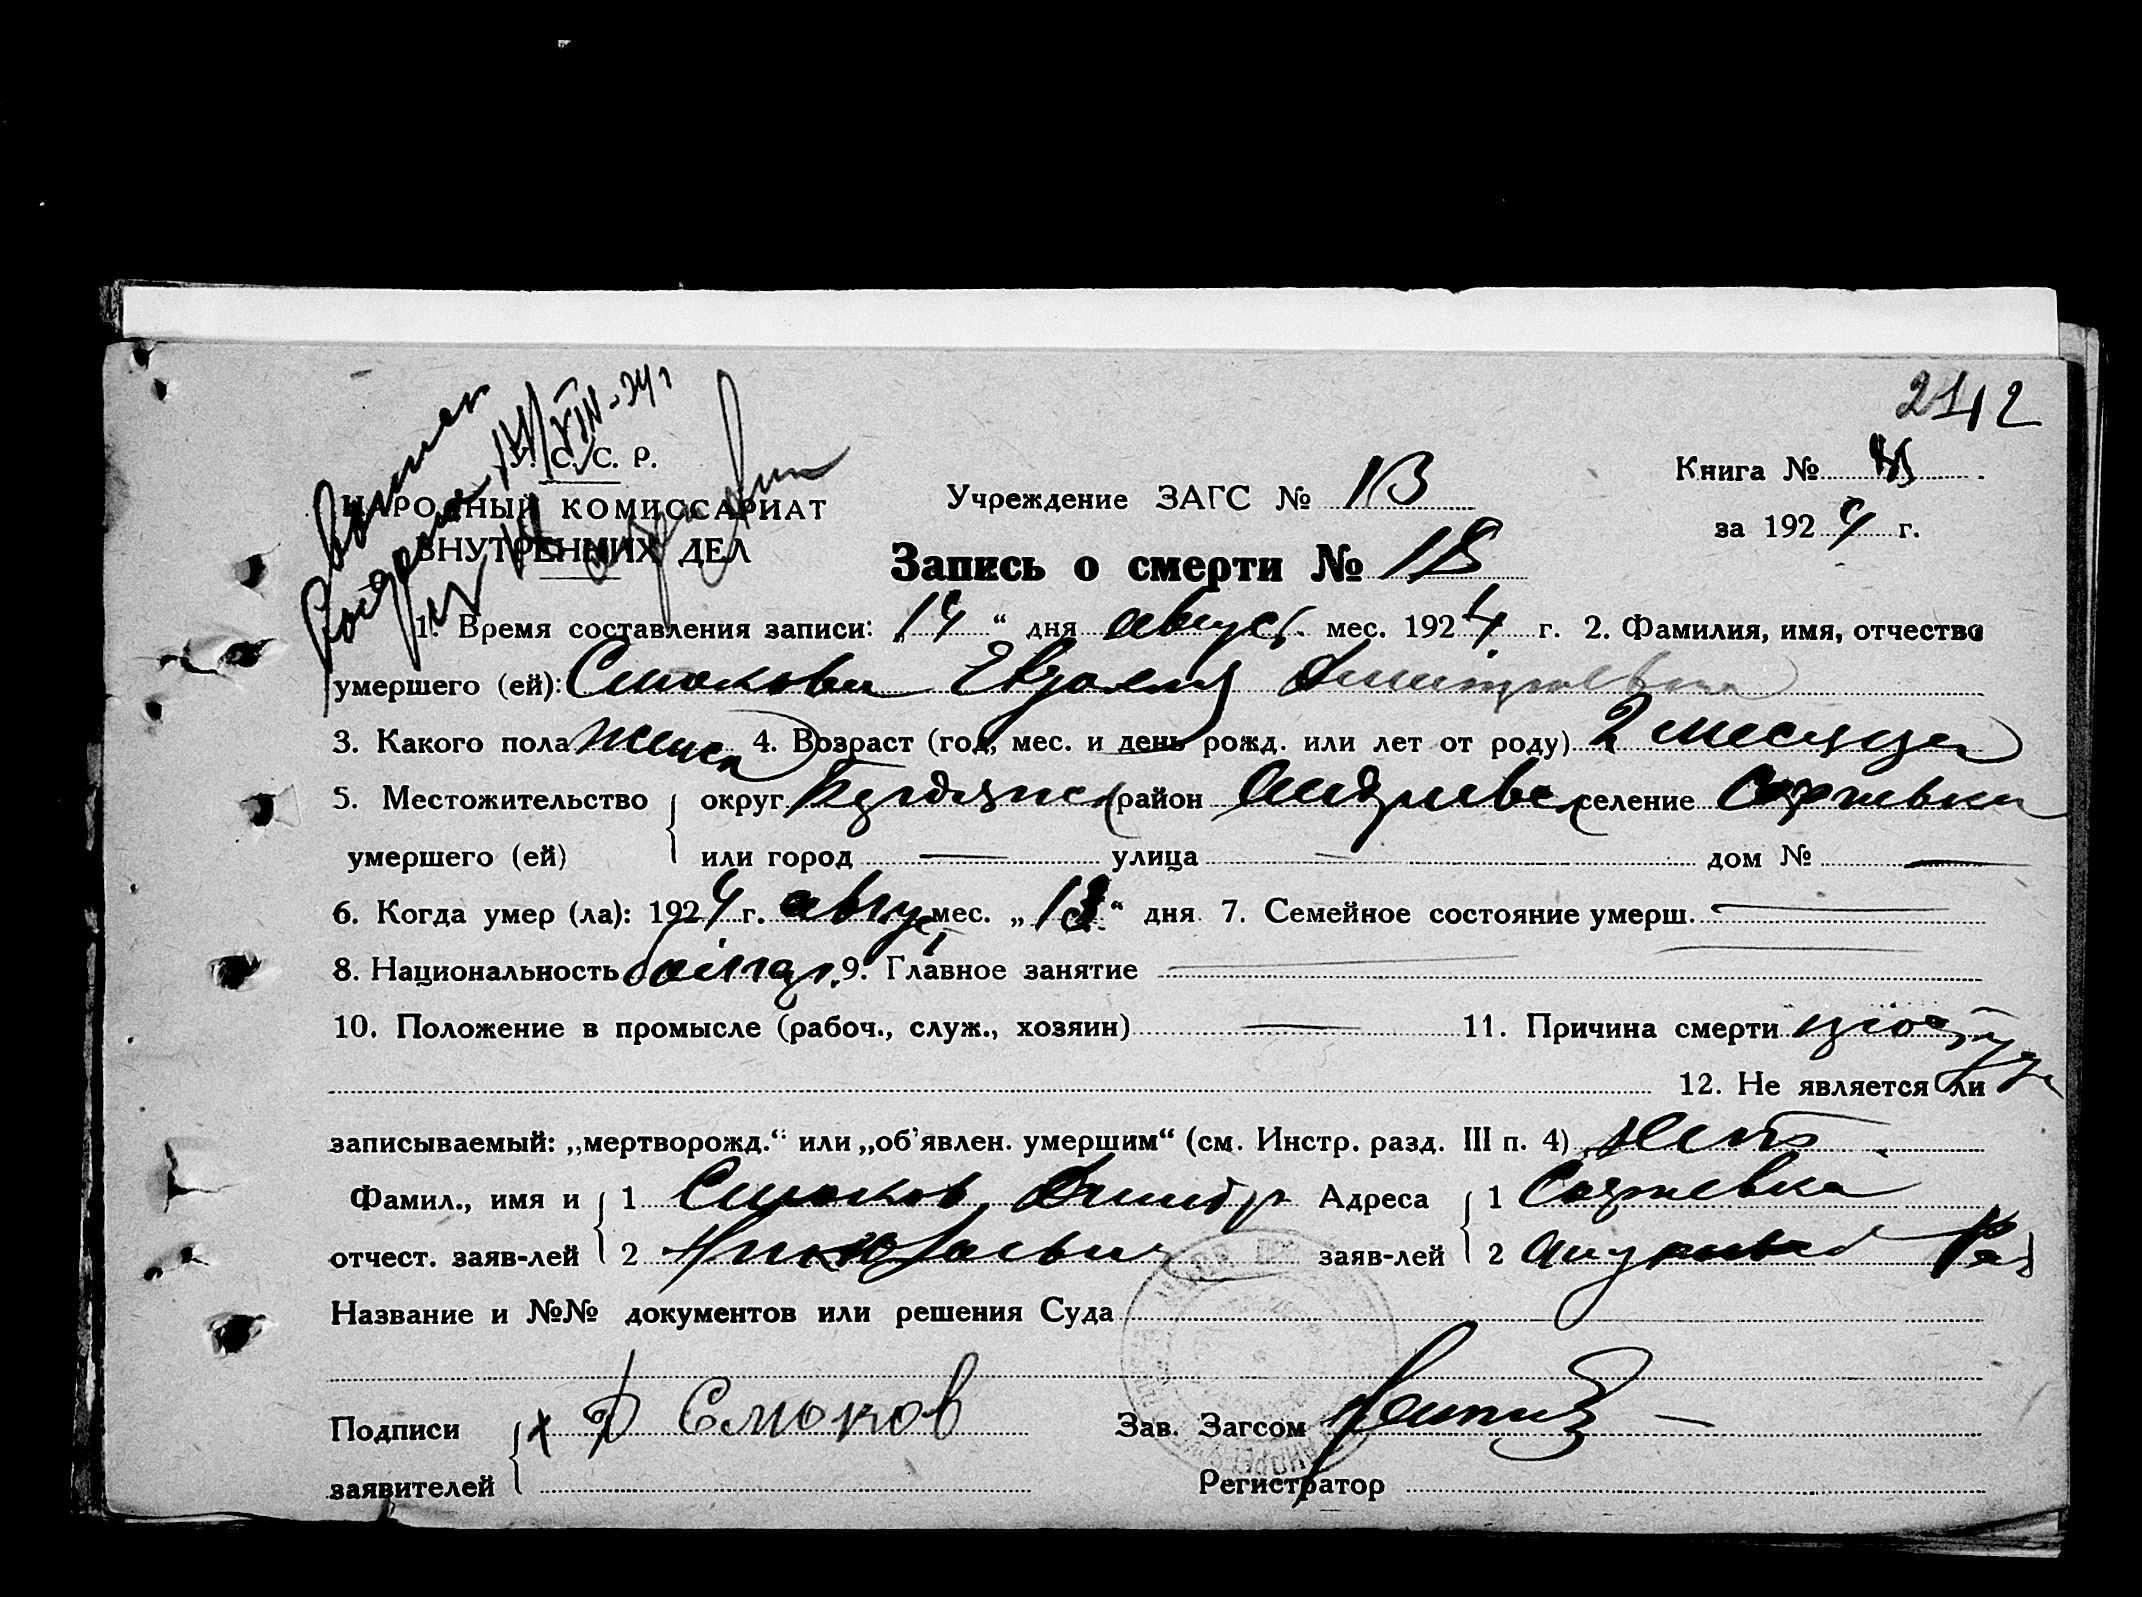 21 12
У. С. С. Р.
НАРОДНЫЙ КОМИССАРИАТ
ВНУТРЕННИХ ДЕЛ
Учреждение ЗАГС №
Книга №
за 1924 г.
Запись о смерти № 18
1. Время составления записи: „14“ дня август. мес. 1924 г. 2. Фамилия, имя, отчество
умершего (ей): Смокова Евдокия Дмитриевна
3. Какого пола женск 4. Возраст (год, мес. и день рожд. или лет от роду) 2 месяца
5. Местожительство округ район селение
умершего (ей) или город — улица — дом № —
6. Когда умер (ла): 1924 г. август мес. „13“ дня 7. Семейное состояние умерш. —
8. Национальность болгар. 9. Главное занятие —
10. Положение в промысле (рабоч., служ., хозяин) — 11. Причина смерти
12. Не является ли
записываемый: „мертворожд.“ или „об’явлен. умершим“ (см. Инстр. разд. III п. 4) нет
Фамил., имя и 1 Смоков Дмитр Адреса 1
отчест. заяв-лей 2 Николаевич заяв-лей 2
Название и №№ документов или решения Суда
Подписи х Д Смоков Зав. Загсом
заявителей Регистратор